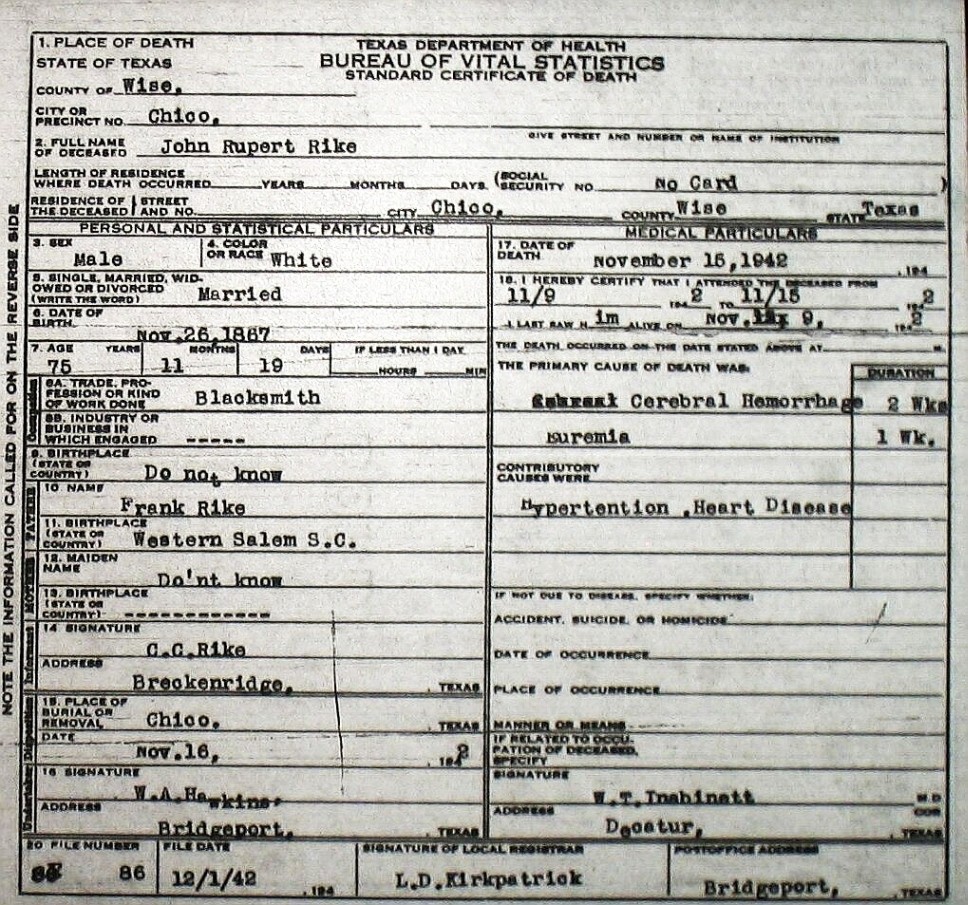 1. PLACE OF DEATH
STATE OF TEXAS
COUNTY OF Wise,
TEXAS DEPARTMENT OF HEALTH
BUREAU OF VITAL STATISTICS
STANDARD CERTIFICATE OF DEATH
CITY OR
PRECINCT NO. Chico,
GIVE STREET AND NUMBER OR NAME OF INSTITUTION
2. FULL NAME
OF DECEASED John Rupert Rike
LENGTH OF RESIDENCE
WHERE DEATH OCCURRED YEARS MONTHS DAYS (SOCIAL SECURITY NO. No Card )
RESIDENCE OF THE DECEASED STREET AND NO. CITY Chico, COUNTY Wise STATE Texas
PERSONAL AND STATISTICAL PARTICULARS
3. SEX
Male
4. COLOR
OR RACE White
5. SINGLE, MARRIED, WID-
OWED OR DIVORCED
(WRITE THE WORD) Married
6. DATE OF
BIRTH Nov.26,1867
7. AGE YEARS MONTHS DAYS IF LESS THAN 1 DAY
75 11 19 HOURS MIN
Occupation
8A. TRADE, PRO-
FESSION OR KIND
OF WORK DONE Blacksmith
8B. INDUSTRY OR
BUSINESS IN
WHICH ENGAGED -----
9. BIRTHPLACE
(STATE OR
COUNTRY) Do not know
FATHER
10 NAME
Frank Rike
11. BIRTHPLACE
(STATE OR
COUNTRY) Western Salem S.C.
MOTHER
12. MAIDEN
NAME Do'nt know
13. BIRTHPLACE
(STATE OR
COUNTRY) -------------
Informant
14 SIGNATURE
C.C.Rike
ADDRESS
Breckenridge, , TEXAS
Disposition
15. PLACE OF
BURIAL OR
REMOVAL Chico. , TEXAS
DATE
Nov.16, , 1942
Undertaker
16 SIGNATURE
W.A.Hawkins.
ADDRESS
Bridgeport, , TEXAS
MEDICAL PARTICULARS
17. DATE OF
DEATH November 15,1942 , 194
18. I HEREBY CERTIFY THAT I ATTENDED THE DECEASED FROM
11/9 1942 TO 11/15 1942
I LAST SAW H im ALIVE ON Nov. 9, 1942
THE DEATH OCCURRED ON THE DATE STATED ABOVE AT M.
THE PRIMARY CAUSE OF DEATH WAS: DURATION
Cerebral Hemorrhage 2 Wks
Euremia 1 Wk.
CONTRIBUTORY
CAUSES WERE
Hypertention ,Heart Disease
IF NOT DUE TO DISEASE, SPECIFY WHETHER:
ACCIDENT, SUICIDE, OR HOMICIDE
DATE OF OCCURRENCE
PLACE OF OCCURRENCE
MANNER OR MEANS
IF RELATED TO OCCU-
PATION OF DECEASED,
SPECIFY
SIGNATURE
W.T.Inabinett M D
ADDRESS
Decatur, , TEXAS
20 FILE NUMBER
86
FILE DATE
12/1/42 , 194
SIGNATURE OF LOCAL REGISTRAR
L.D.Kirkpatrick
POSTOFFICE ADDRESS
Bridgeport, , TEXAS
NOTE THE INFORMATION CALLED FOR ON THE REVERSE SIDE